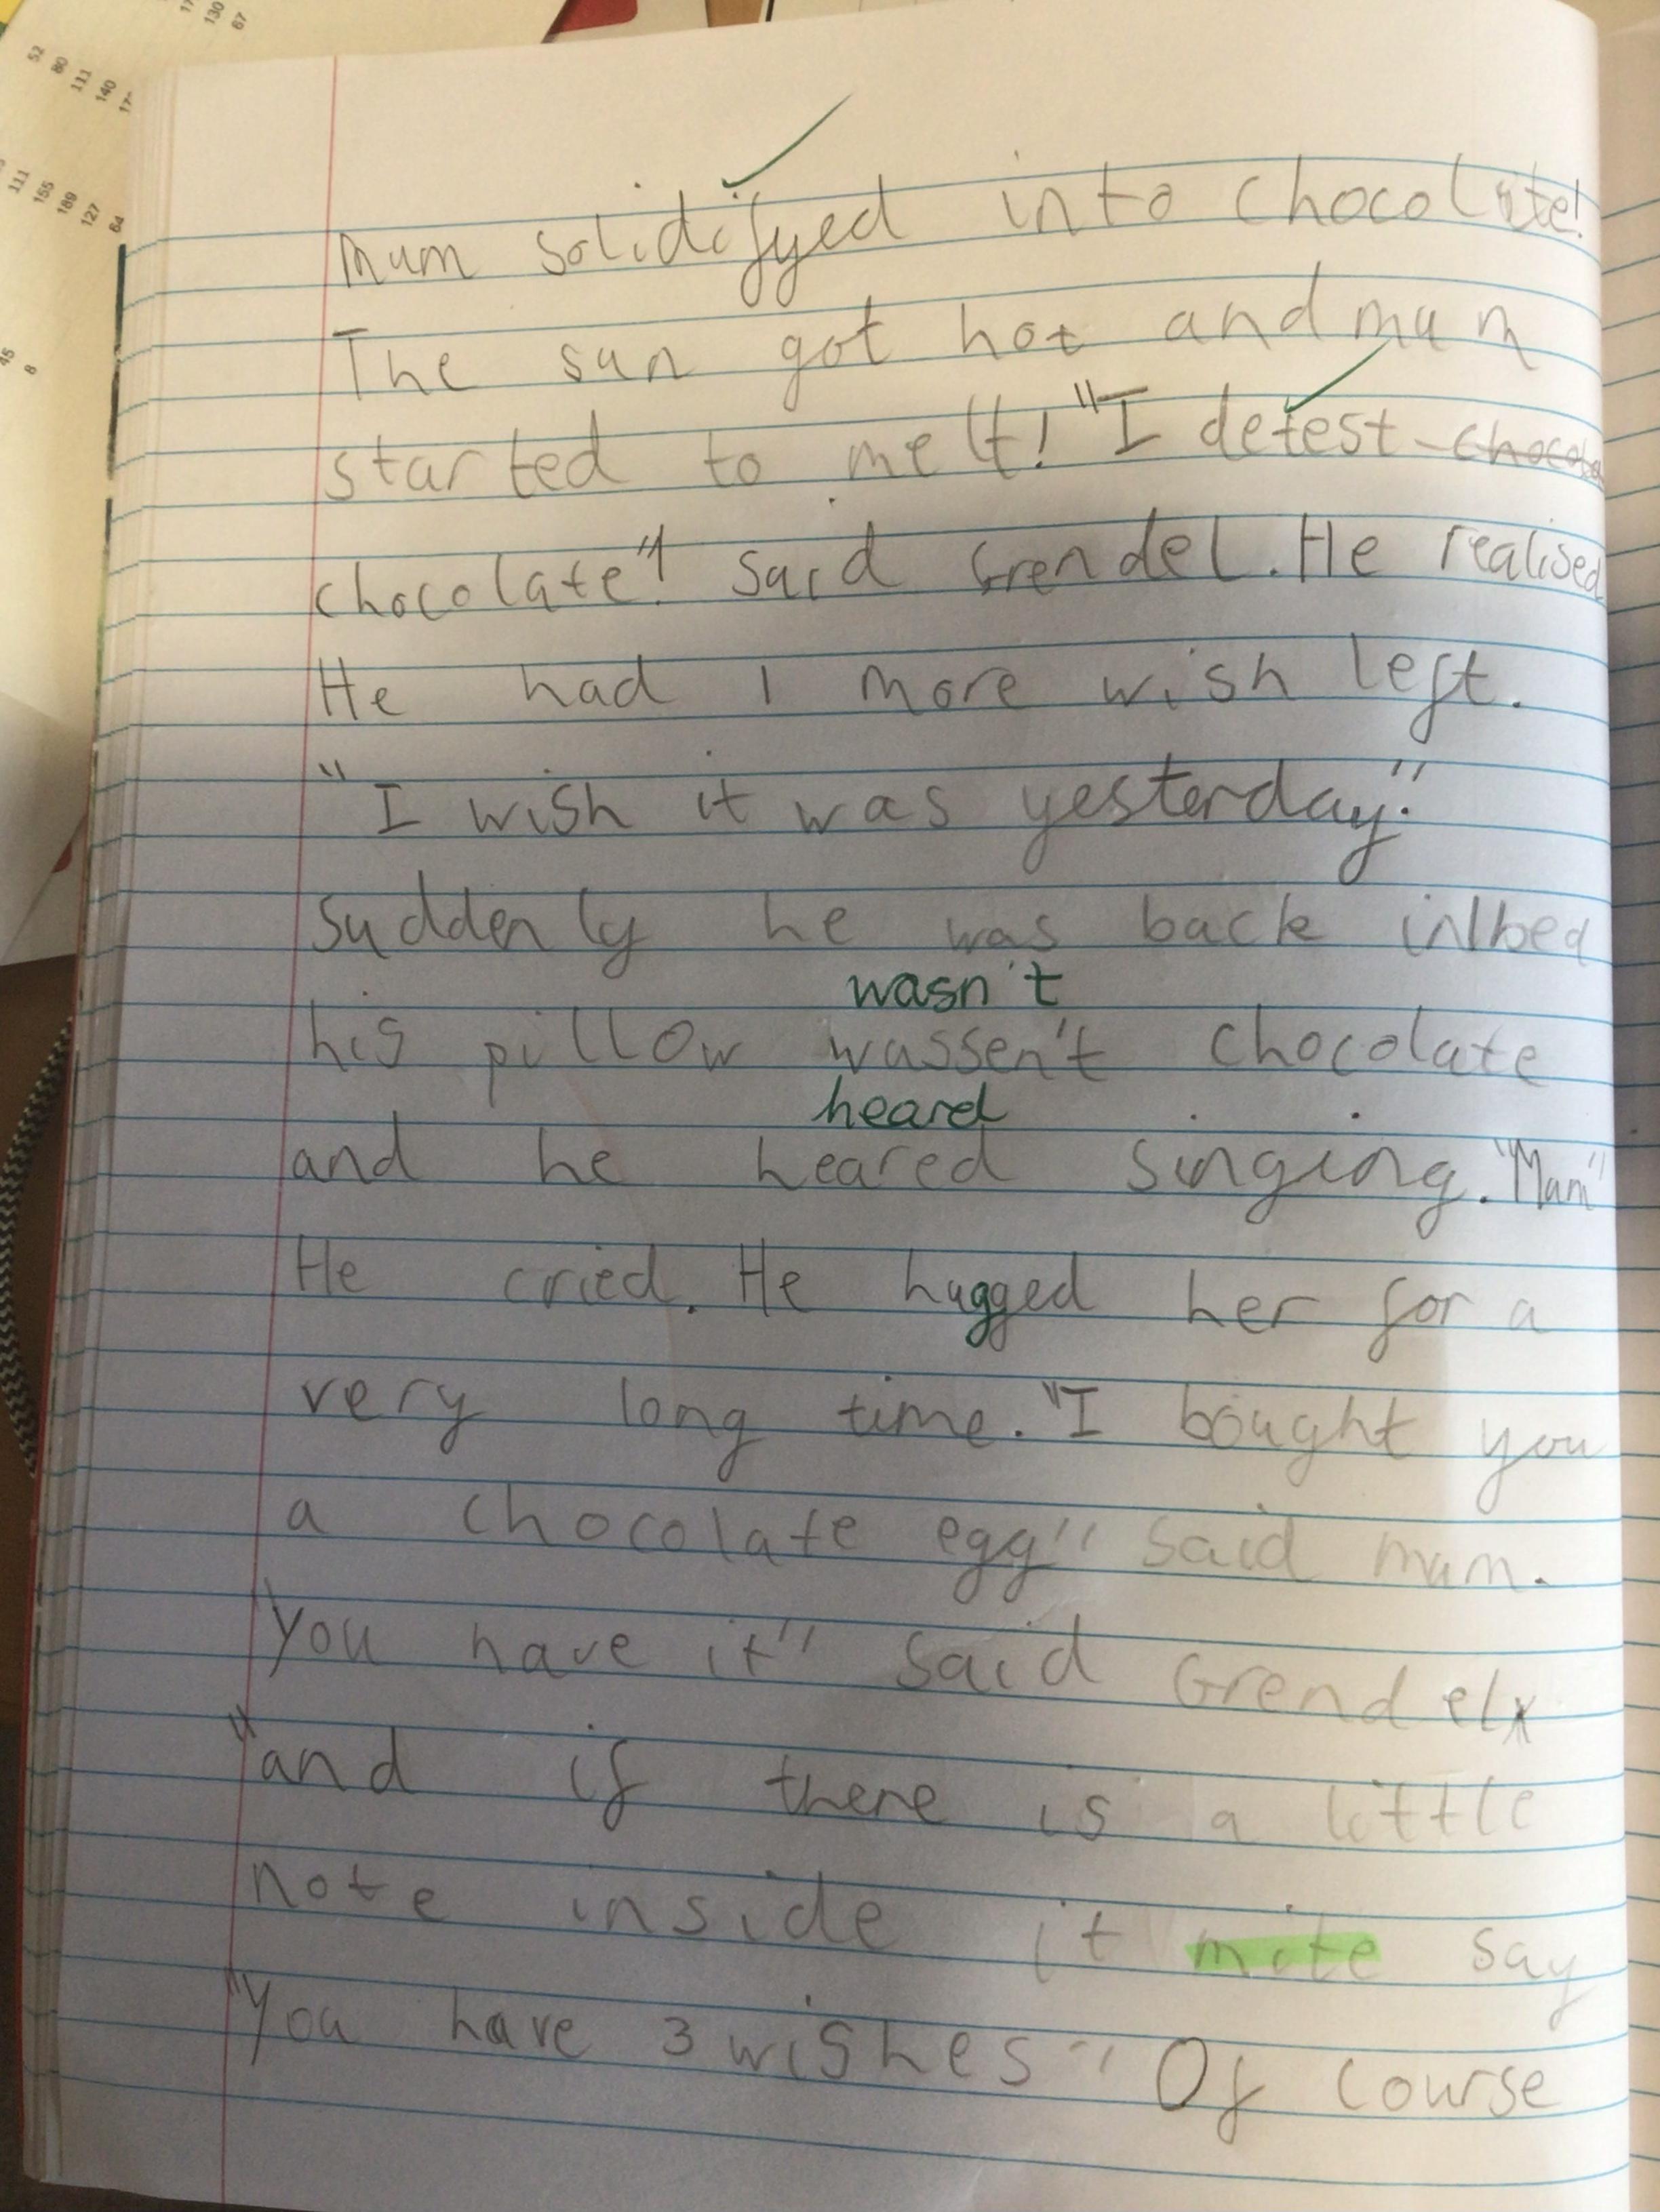 52 80 111 140
130
67
111 155 189 127 64
45 8
Mum solidifyed into chocolate!
The sun got hot and mum
started to melt! "I detest chocola
chocolate!" said Grendel. He realised
He had 1 more wish left.
"I wish it was yesterday."
Suddenly he was back in bed
wasn't
his pillow wassen't chocolate
heard
and he heared singing. "Mum"
He cried. He hugged her for a
very long time. "I bought you
a chocolate egg" said mum.
"You have it" said Grendel
"and if there is a little
note inside it mite say
"You have 3 wishes" Of course